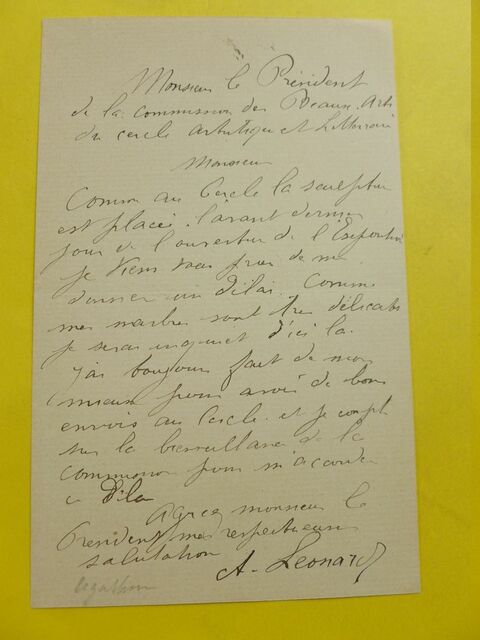 Monsieur le Président
de la commission des Beaux-Arts
du cercle artistique et Litteraire
Monsieur
Comme au Cercle la sculpture
est placé l'avant dernier
jour de l'ouverture de l'Exposition
je viens vous prier de me
donner un délai. Comme
mes marbres sont tres délicats
je serai inquiet d'ici la.
J'ai toujours fait de mon
mieux pour avoir de bons
envois au Cercle. et je compte
sur la bienveillance de la
commission pour m'accorder
ce délai
Agreez monsieur le
President mes respectueuses
salutation
A. Leonard